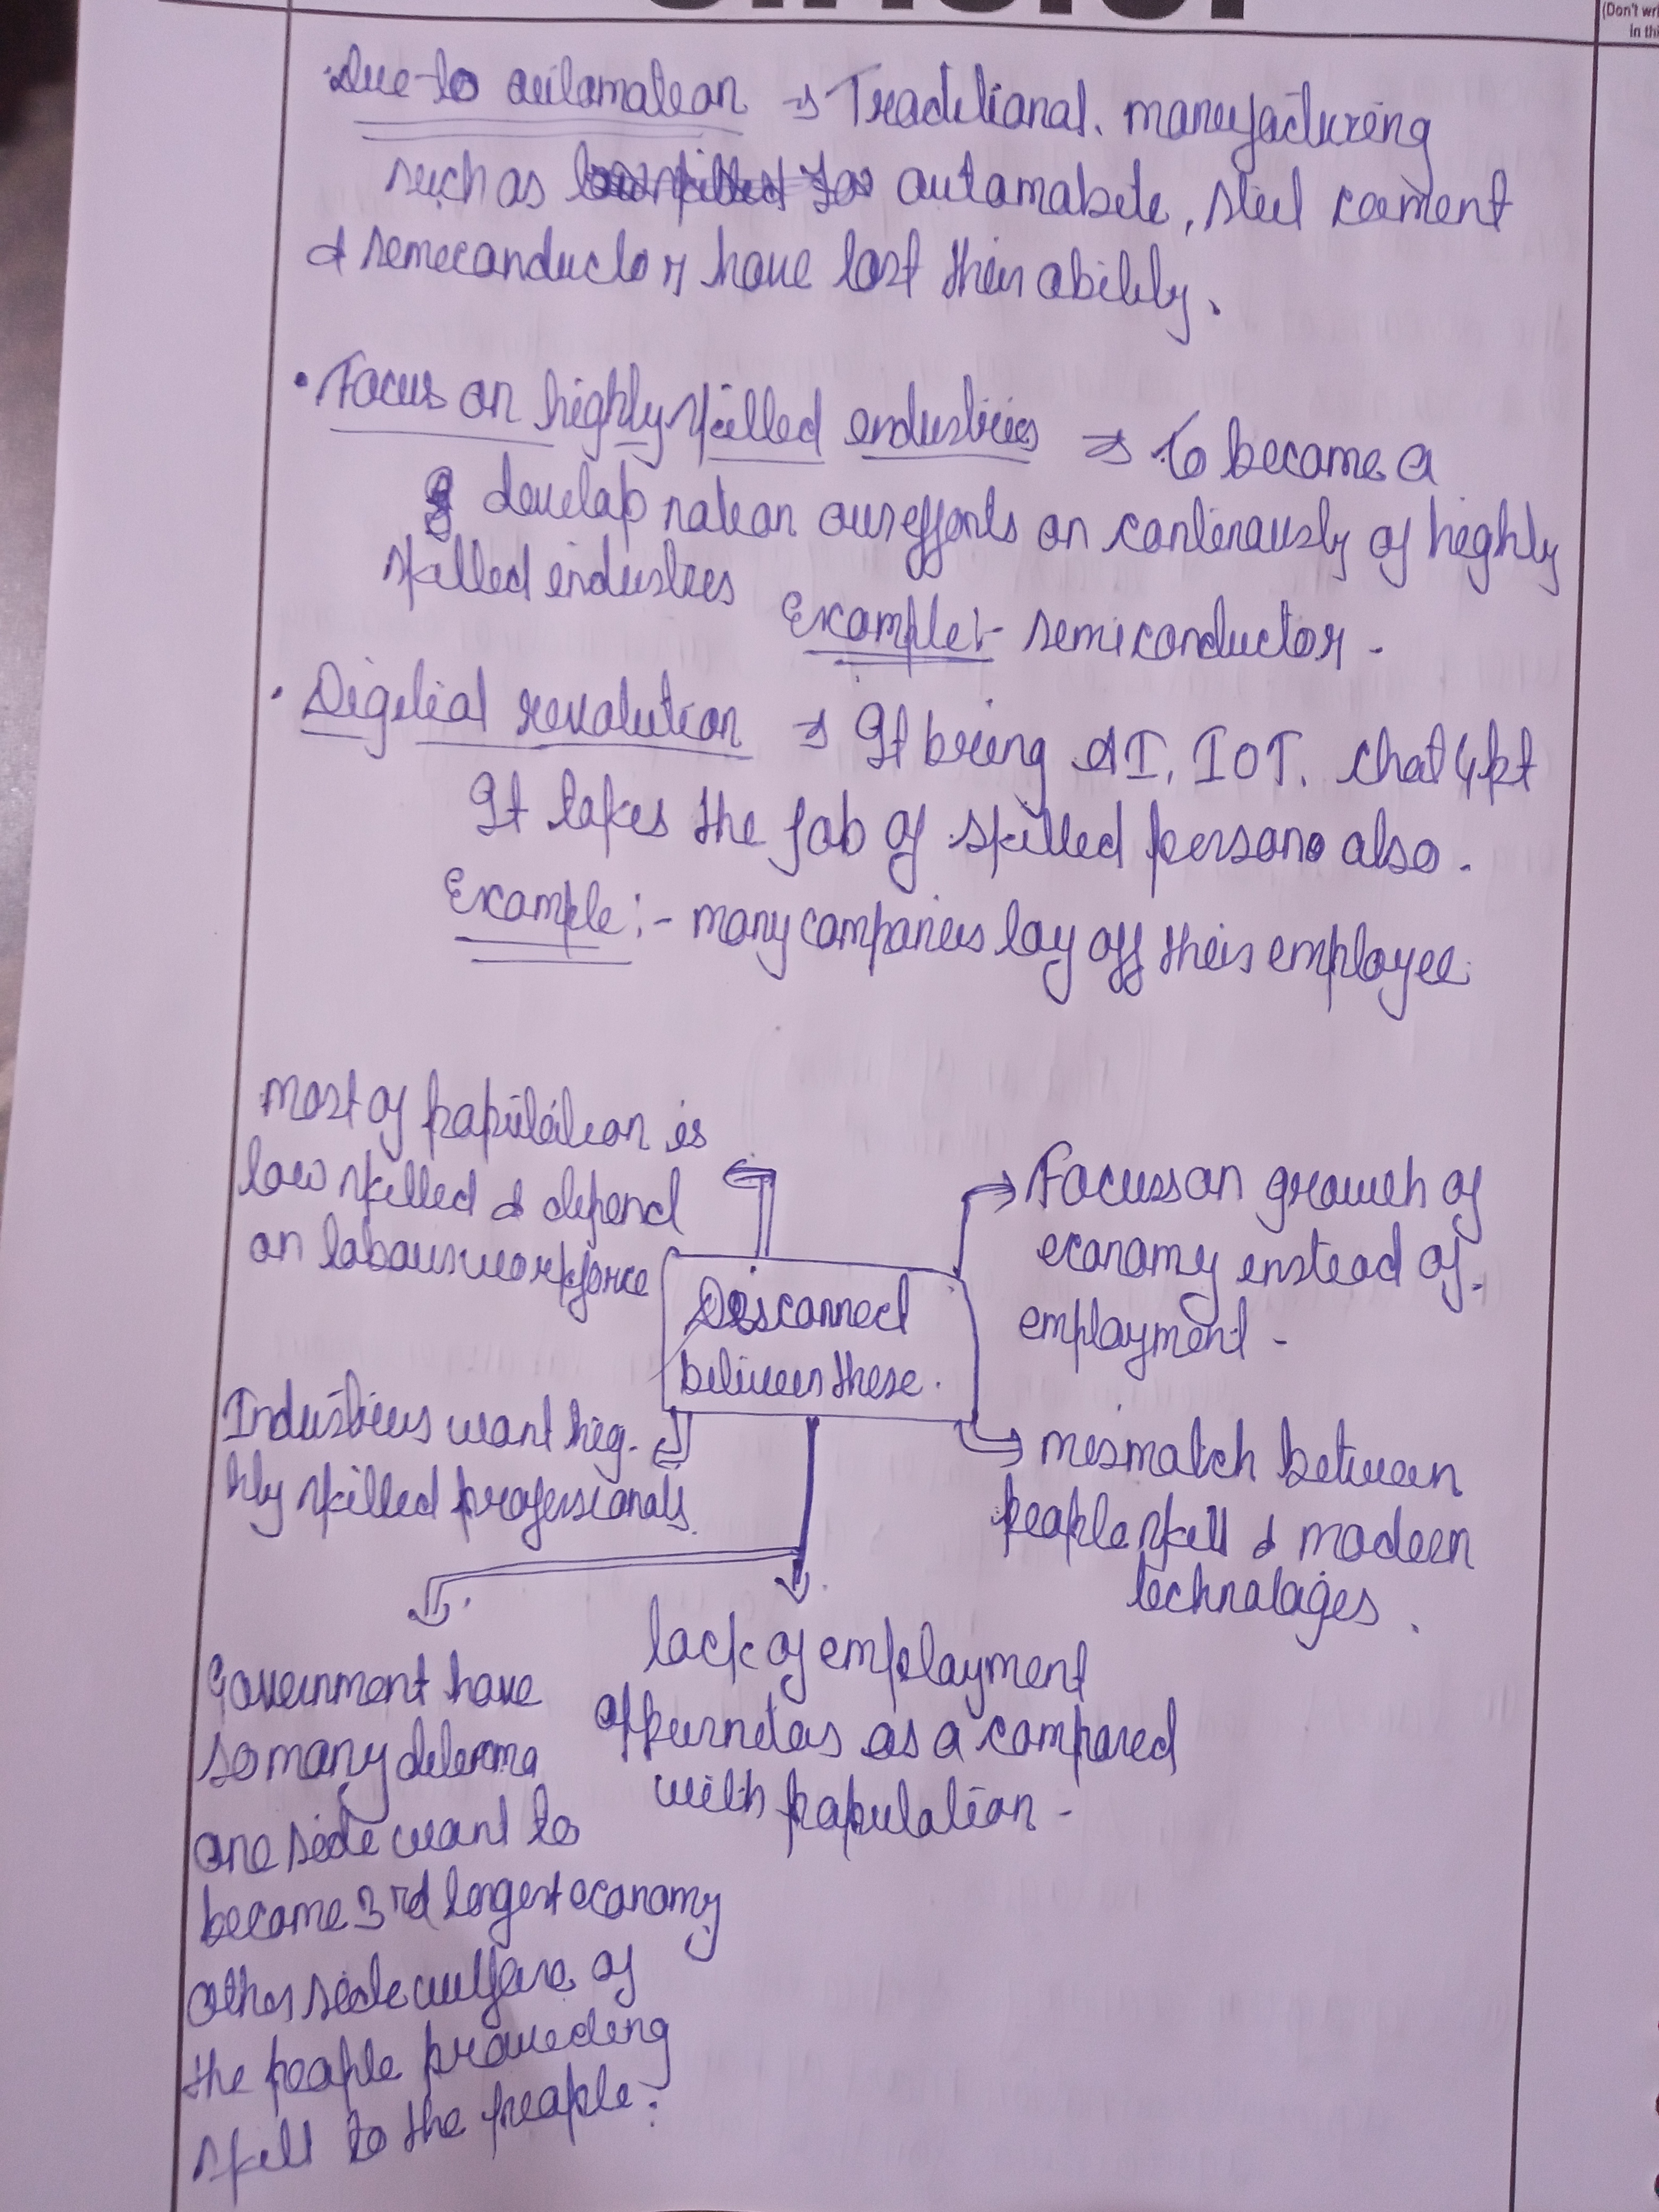 (Don't wri
in thi
Due to automation → Traditional. manufacturing
such as automobile, steel cement
& semiconductor have lost their ability.
• Focus on highly skilled industries ⇒ To become a
develop nation our efforts on continously of highly
skilled industries
Example:- semiconductor -
• Digitial revolution ⇒ It bring AI, IOT, chat Gpt
It takes the job of skilled persons also.
Example:- many companies lay off their employee.
most of population is
low skilled & depend
on labour workforce
Focuss on growth of
economy instead of
employment -
Disconnect
between these.
Industries want hig-
hly skilled professionals.
mismatch between
people skill & modern
technologies.
Government have
so many dilemma
one side want to
become 3rd largest economy
other side welfare of
the people providing
skill to the people.
lack of employment
as a compared
with population -